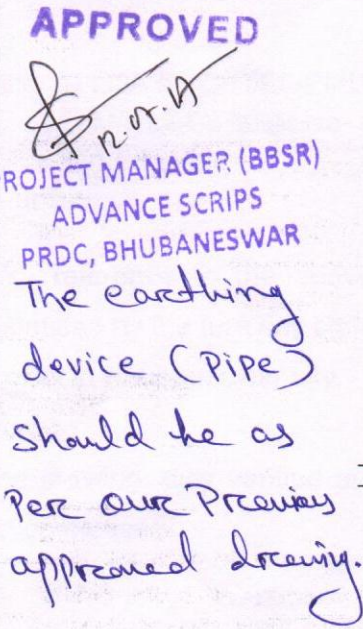 APPROVED
12.05.17
PROJECT MANAGER (BBSR)
ADVANCE SCRIPS
PRDC, BHUBANESWAR
The earthing
device (Pipe)
Should be as
Per our Previous
approved drawing.